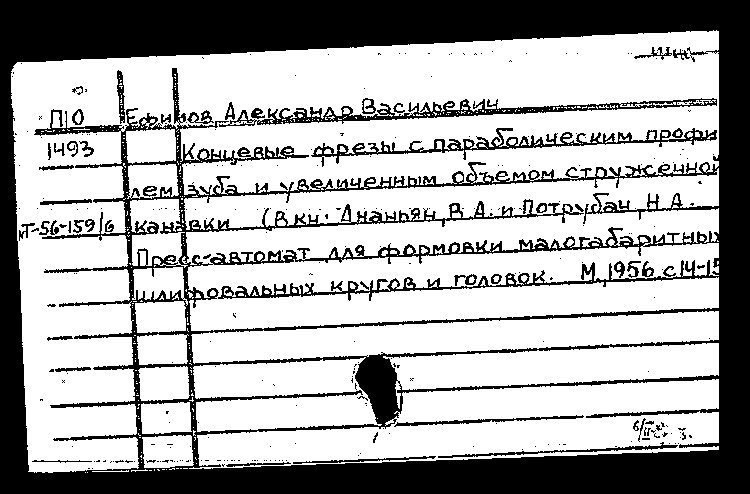 П|О Ефимов, Александр Васильевич
1493 Концевые фрезы с параболическим профи
лем зуба и увеличенным объемом струженной
Т-56-159/6 канавки (В кн: Ананьян, В.А. и Потрубач, Н.А.
Пресс-автомат для формовки малогабаритных
шлифовальных кругов и головок. М, 1956 с 14-15